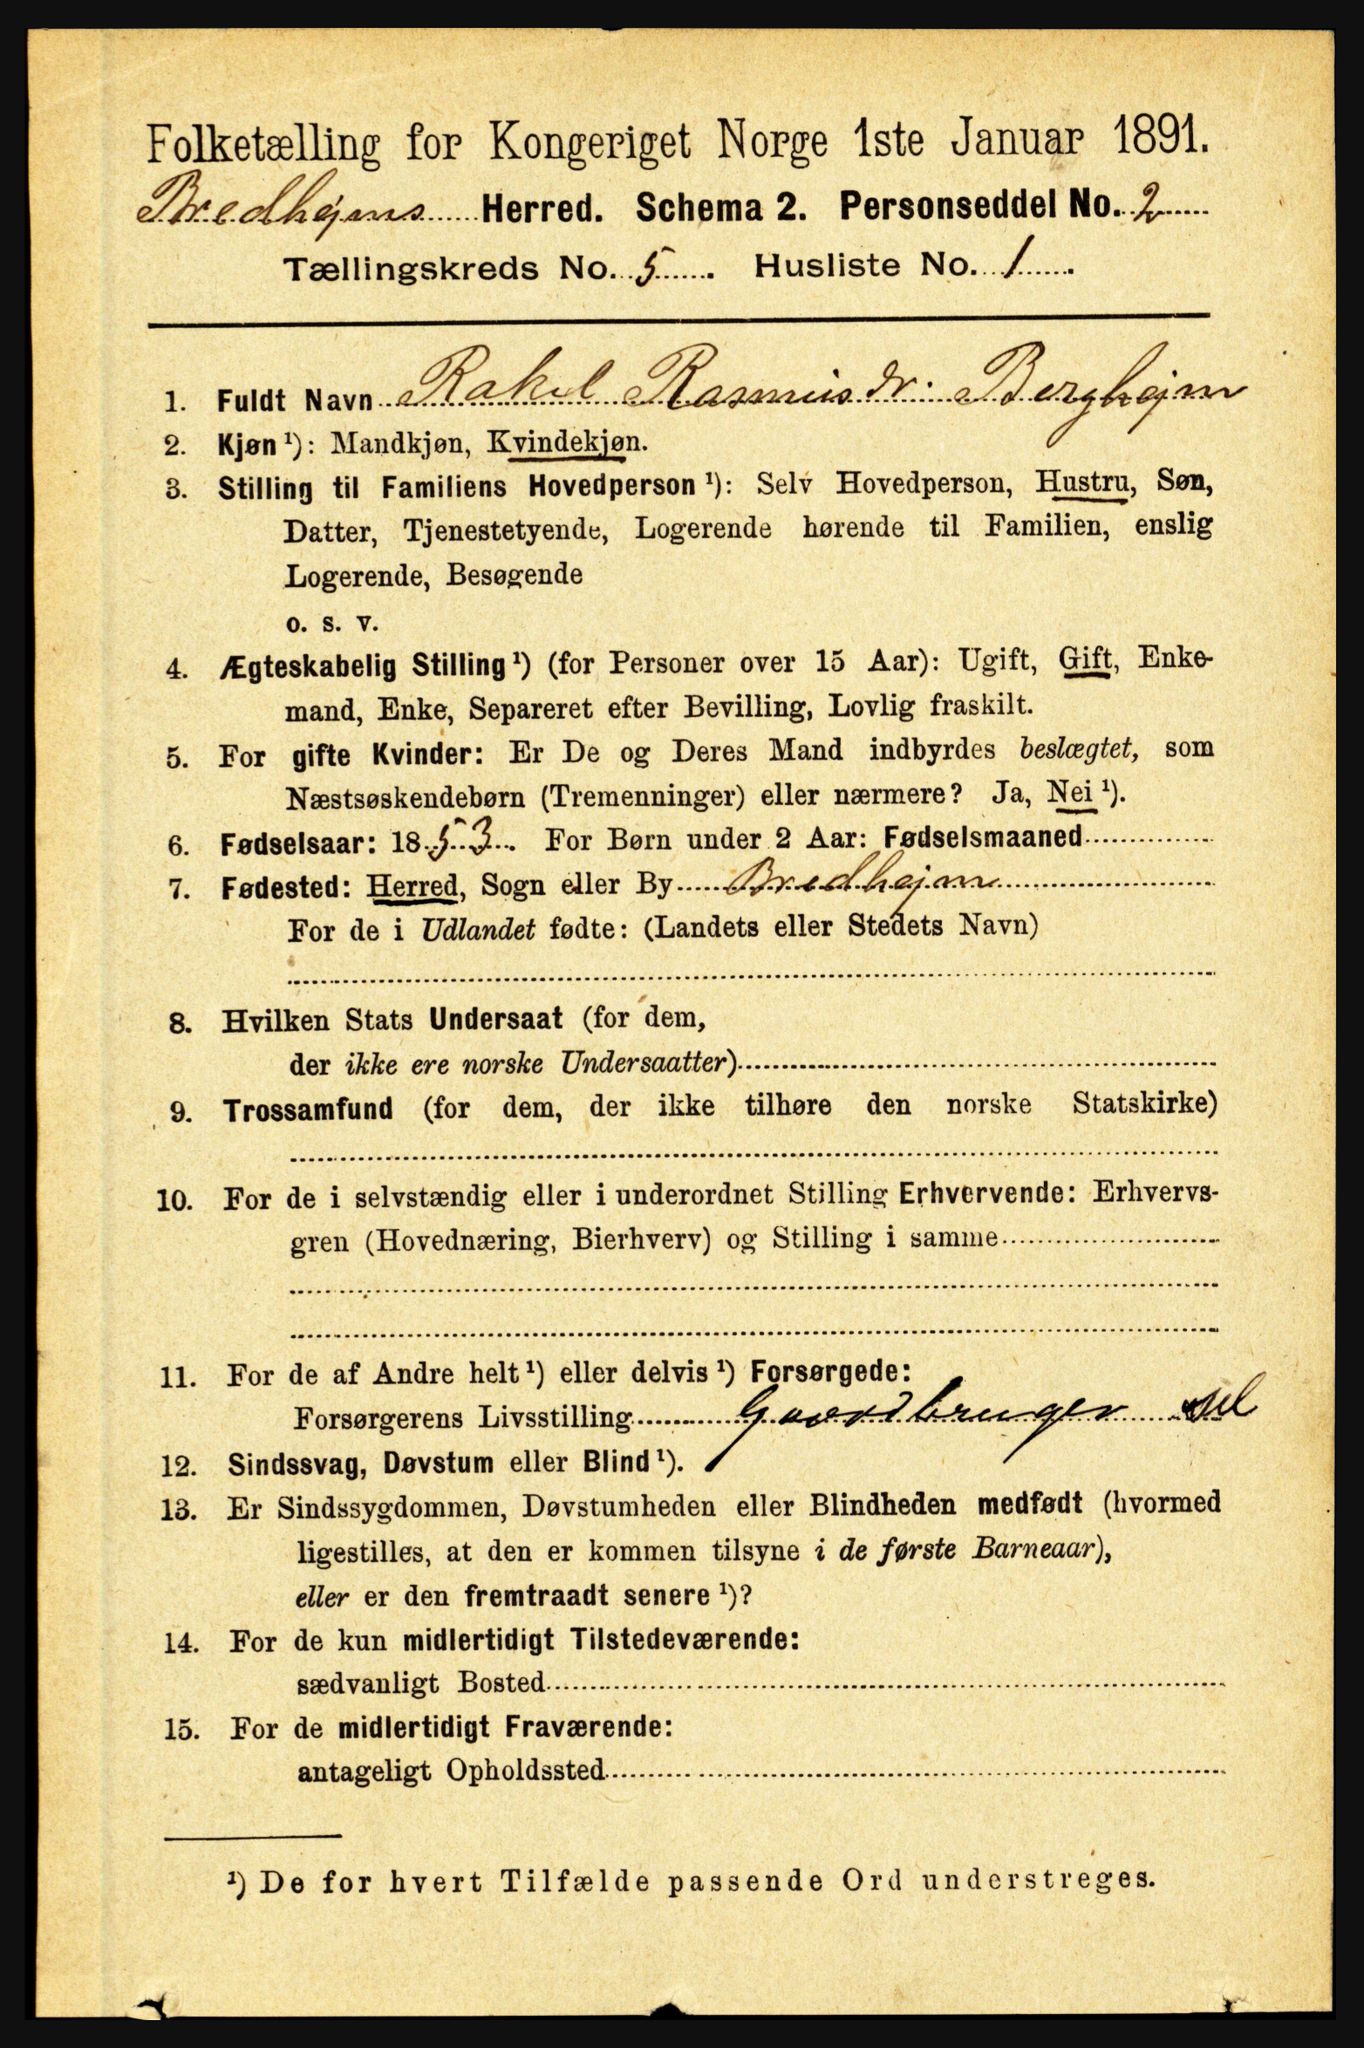 Folketælling for Kongeriget Norge 1ste Januar 1891.
Bredhejms Herred. Schema 2. Personseddel No. 2
Tællingskreds No. 5. Husliste No. 1.
1. Fuldt Navn Rakel Rasmusdr. Berghejm
2. Kjøn ¹): Mandkjøn, Kvindekjøn.
3. Stilling til Familiens Hovedperson ¹): Selv Hovedperson, Hustru, Søn,
Datter, Tjenestetyende, Logerende hørende til Familien, enslig
Logerende, Besøgende
o. s. v.
4. Ægteskabelig Stilling ¹) (for Personer over 15 Aar): Ugift, Gift, Enke-
mand, Enke, Separeret efter Bevilling, Lovlig fraskilt.
5. For gifte Kvinder: Er De og Deres Mand indbyrdes beslægtet, som
Næstsøskendebørn (Tremenninger) eller nærmere? Ja, Nei ¹).
6. Fødselsaar: 1853. For Børn under 2 Aar: Fødselsmaaned
7. Fødested: Herred, Sogn eller By Bredhejm
For de i Udlandet fødte: (Landets eller Stedets Navn)
8. Hvilken Stats Undersaat (for dem,
der ikke ere norske Undersaatter)
9. Trossamfund (for dem, der ikke tilhøre den norske Statskirke)
10. For de i selvstændig eller i underordnet Stilling Erhvervende: Erhvervs-
gren (Hovednæring, Bierhverv) og Stilling i samme
11. For de af Andre helt ¹) eller delvis ¹) Forsørgede:
Forsørgerens Livsstilling Gaardbruger sel
12. Sindssvag, Døvstum eller Blind ¹).
13. Er Sindssygdommen, Døvstumheden eller Blindheden medfødt (hvormed
ligestilles, at den er kommen tilsyne i de første Barneaar),
eller er den fremtraadt senere ¹)?
14. For de kun midlertidigt Tilstedeværende:
sædvanligt Bosted
15. For de midlertidigt Fraværende:
antageligt Opholdssted
¹) De for hvert Tilfælde passende Ord understreges.